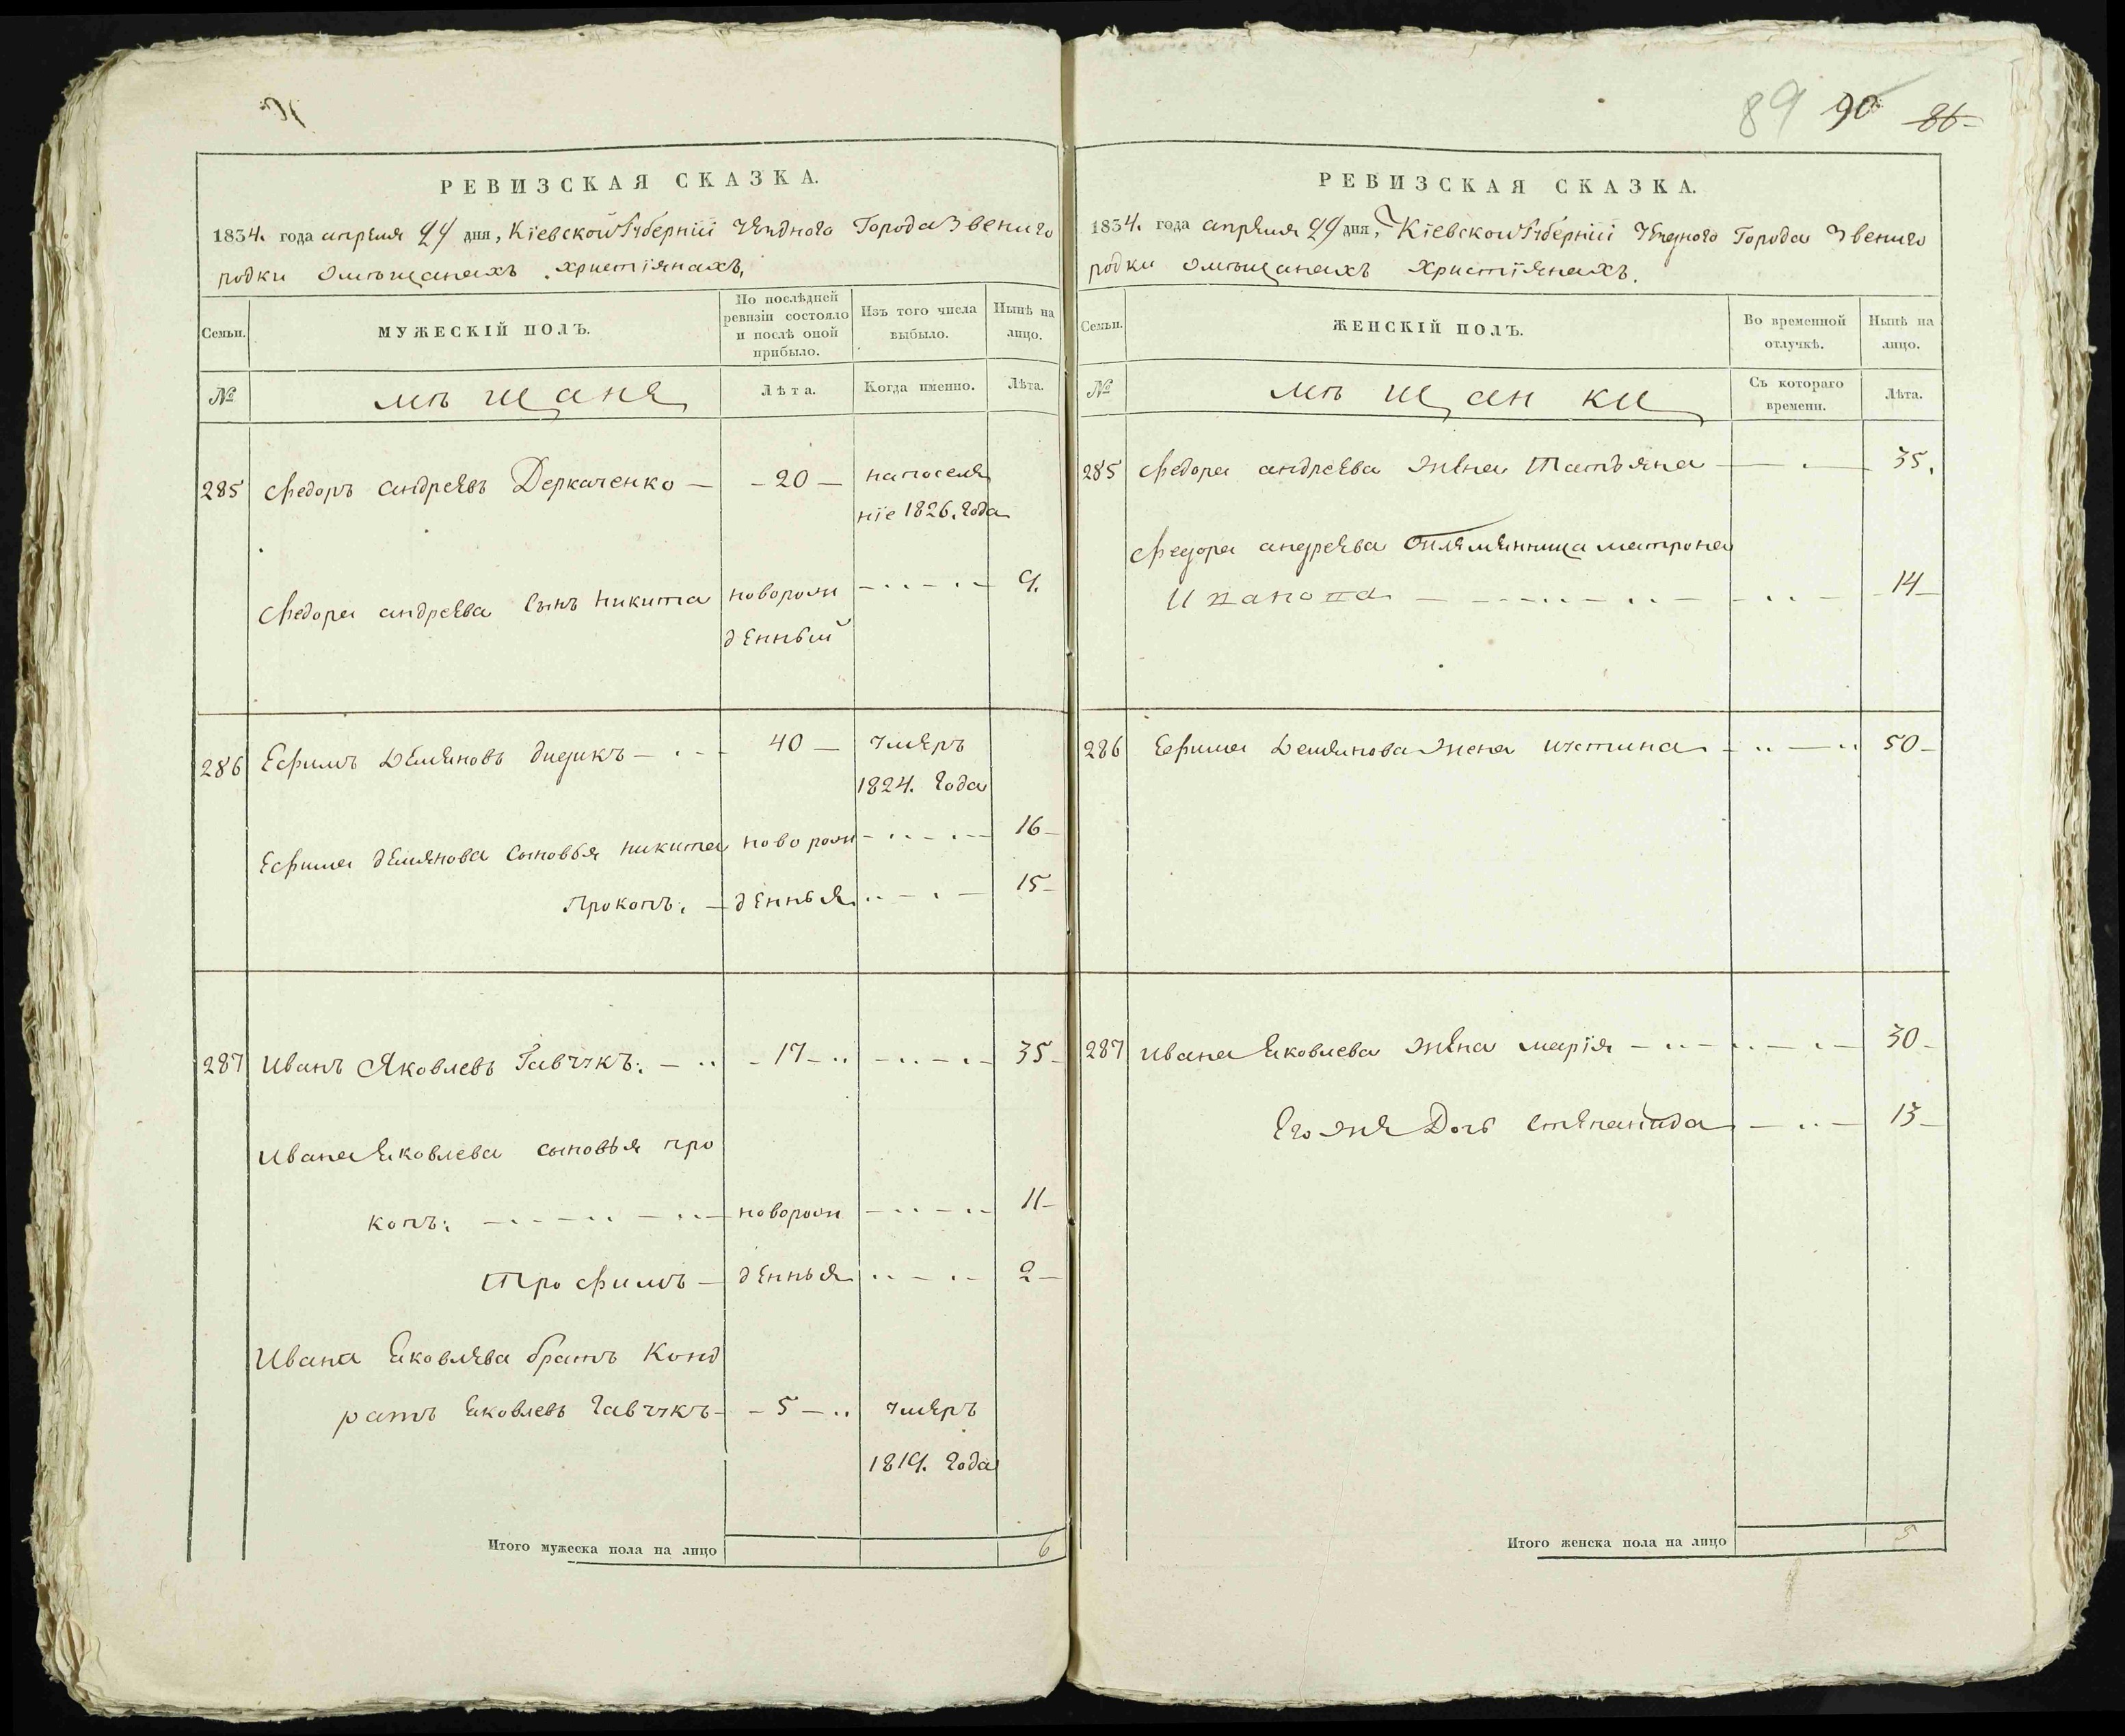 РЕВИЗСКАЯ СКАЗКА.
1834. года апреля 24 дня, Кіевской Губерніи Уездного Города Звениго
родки омѣщанахъ христіянахъ,
Семьи.
МУЖЕСКІЙ ПОЛЪ.
По послѣдней ревизіи состояло и послѣ оной прибыло.
Изъ того числа выбыло.
Нынѣ на лицо.
№
мѣщане
Лѣта.
Когда именно.
Лѣта.
285 Федоръ андреевъ Деркаченко — 20 — напоселе
ніе 1826. года
Федора андреева сынъ никита новорож 9.
денный
286 Ефимъ Демяновъ дидикъ — 40 — умеръ
1824. года
Ефима демянова сыновья никита новорож 16
Прокопъ. —денныя 15
287 Иванъ Яковлевъ Гавукъ: — 17 35
Ивана Яковлева сыновья про
копъ: новорож 11
Трофимъ — денныя 2
Ивана Яковлева братъ Конд
ратъ Яковлевъ Гавукъ — 5 — умеръ
1819. года
Итого мужеска пола на лицо 6
89 90 86
РЕВИЗСКАЯ СКАЗКА.
1834. года апреля 24 дня, Кіевской Губерніи Уездного Города Звениго
родки омѣщанахъ христіянахъ.
Семьи.
ЖЕНСКІЙ ПОЛЪ.
Во временной отлучкѣ.
Нынѣ на лицо.
№
мѣщанки
Съ котораго времени.
Лѣта.
285 Федора андреева жена Татьяна 35.
Федора андреева племенница матрона
14
286 Ефима Демянова жена устина 50
287 Ивана Яковлева жена марія 30
Его же Дочь степанида 13
Итого женска пола на лицо 5